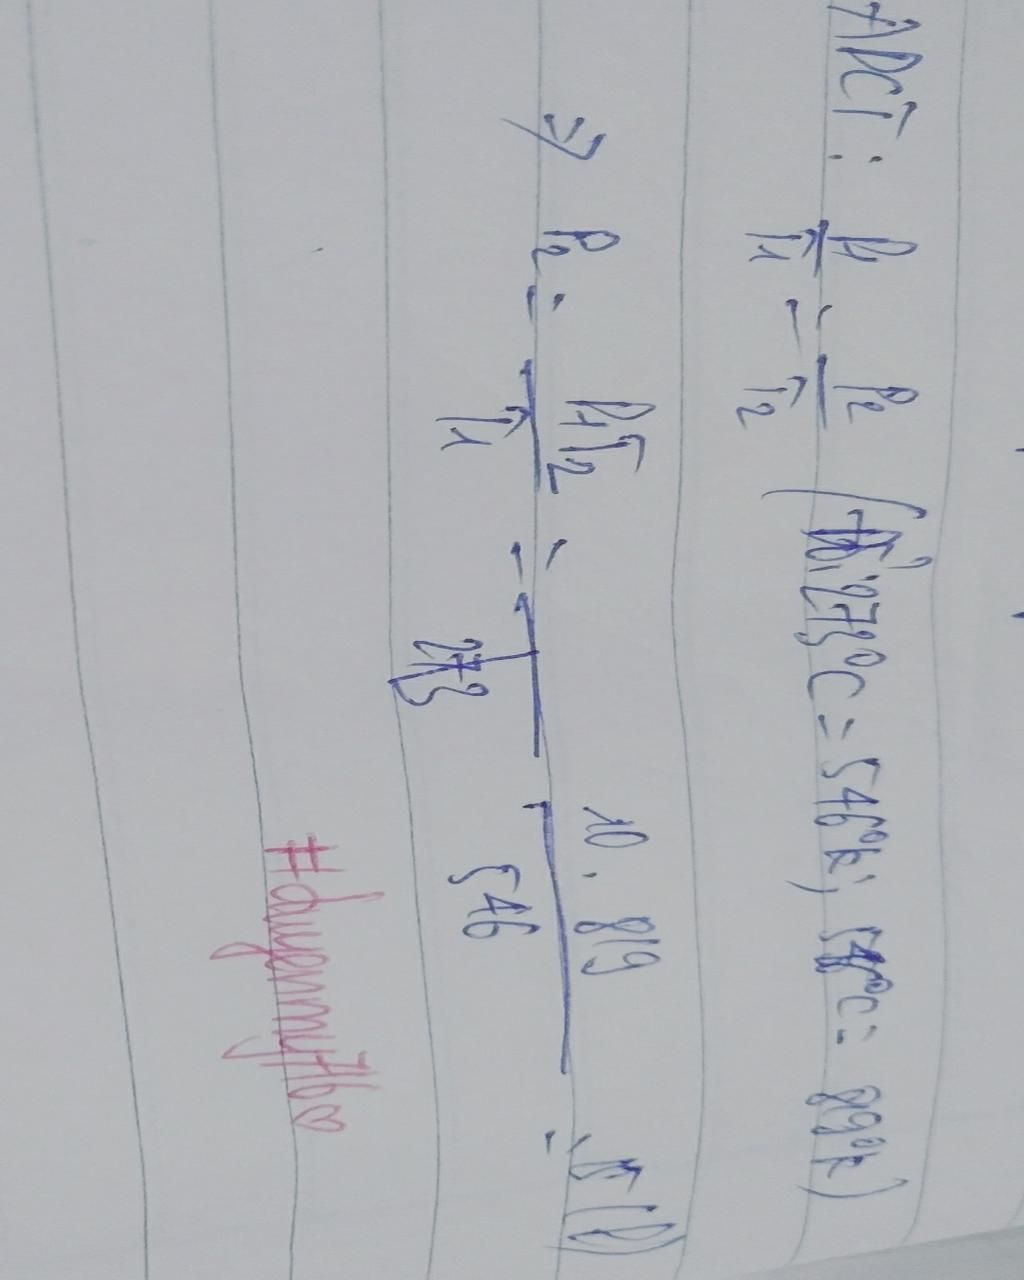 ADCT: P1/T1 = P2/T2 (Đổi 273°C = 546°k; 546°C = 819°k)
=> P2 = P1T2/T1 = 10.819/546 = 15 (l)
#duyenmy7160♡